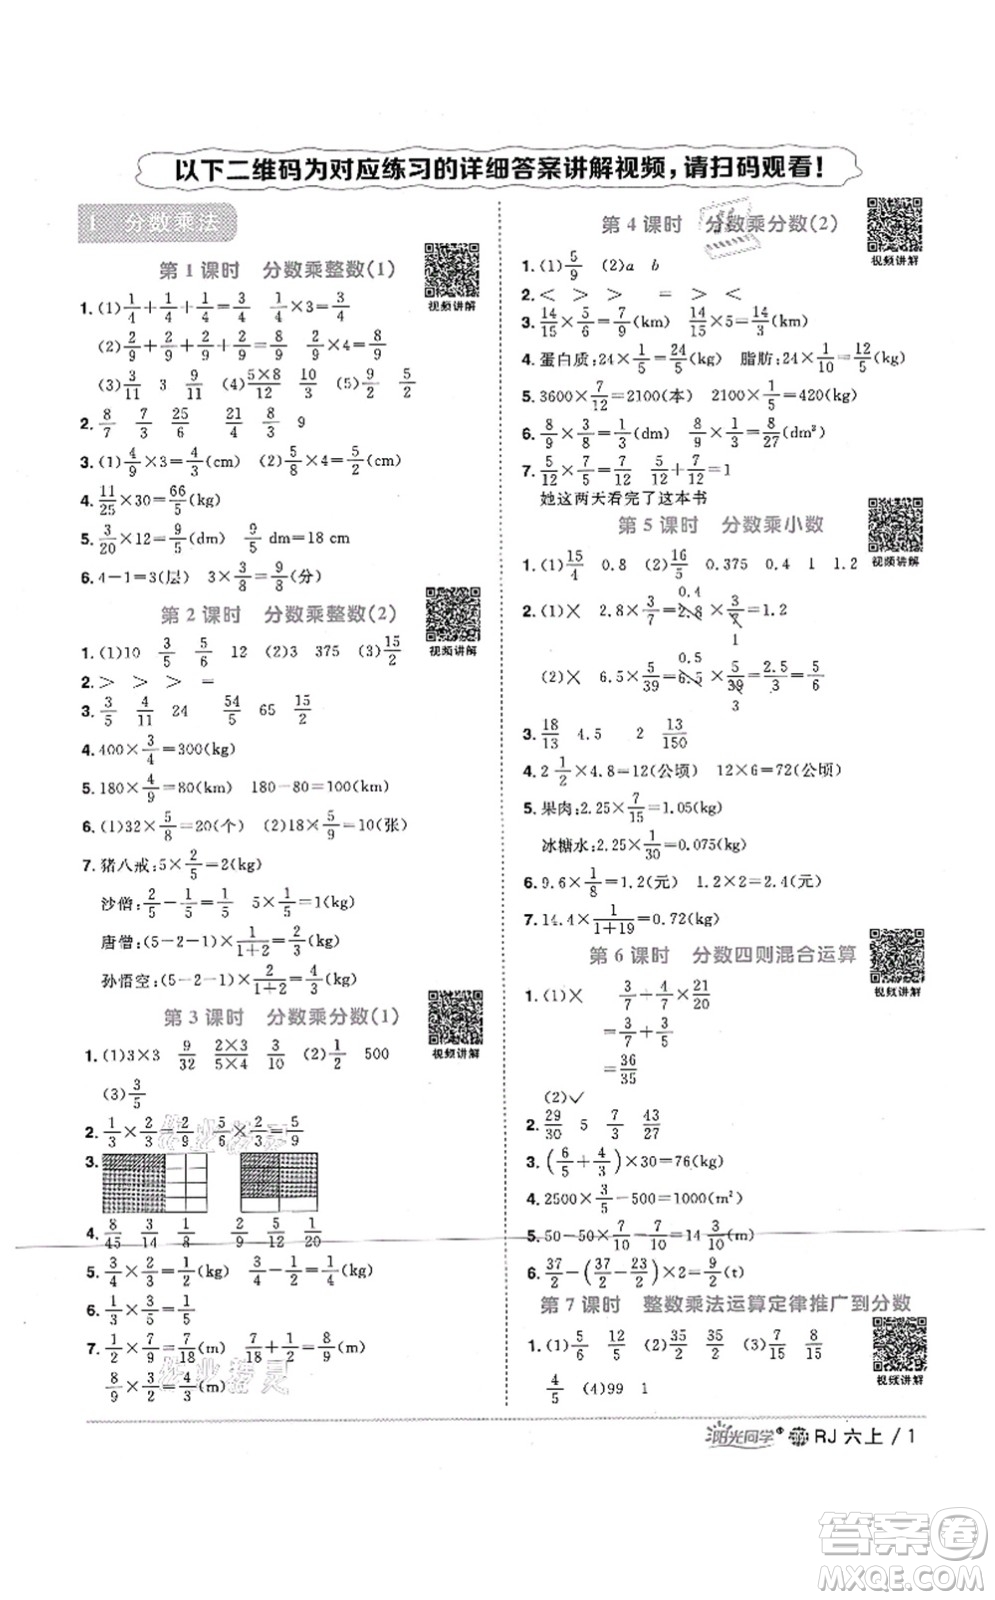 以下二维码为对应练习的详细答案讲解视频，请扫码观看！
1 分数乘法
第1课时 分数乘整数(1)
视频讲解
1.(1)1/4+1/4+1/4=3/4 1/4×3=3/4
(2)2/9+2/9+2/9+2/9=8/9 2/9×4=8/9
(3)3/11 3 9/11 (4)5×8/12 10/3 (5)9/2 9/5
2. 8/7 7/3 25/6 21/4 8/3 9
3.(1)4/9×3=4/3(cm) (2)5/8×4=5/2(cm)
4. 11/25×30=66/5(kg)
5. 3/20×12=9/5(dm) 9/5 dm=18 cm
6. 4-1=3(层) 3×3/8=9/8(分)
第2课时 分数乘整数(2)
视频讲解
1.(1)10 3/5 5/6 12 (2)3 375 (3)15/2
2. > > > =
3. 3/5 4/11 24 54/5 65 15/2
4. 400×3/4=300(kg)
5. 180×4/9=80(km) 180-80=100(km)
6.(1)32×5/8=20(个) (2)18×5/9=10(张)
7. 猪八戒:5×2/5=2(kg)
沙僧:2/5-1/5=1/5 5×1/5=1(kg)
唐僧:(5-2-1)×1/(1+2)=2/3(kg)
孙悟空:(5-2-1)×2/(1+2)=4/3(kg)
第3课时 分数乘分数(1)
视频讲解
1.(1)3×3 9/32 2×3/5×4 3/10 (2)1/2 500
(3)3/5
2. 1/3×2/3=2/9 5/6×2/3=5/9
3.
4. 8/45 3/14 1/8 2/9 5/12 1/20
5. 2/3×3/4=1/2(kg) 2/3×1/2=1/3(kg)
6. 1/3×3/5=1/5
7. 1/2×7/9=7/18(m) 7/18+1/2=8/9(m)
8/9×1/2=4/9(m)
第4课时 分数乘分数(2)
视频讲解
1.(1)5/9 (2)a b
2. < > > = > <
3. 14/15×5/6=7/9(km) 14/15×5=14/3(km)
4. 蛋白质:24×1/5=24/5(kg) 脂肪:24×1/10=12/5(kg)
5. 3600×7/12=2100(本) 2100×1/5=420(kg)
6. 8/9×3/8=1/3(dm) 8/9×1/3=8/27(dm²)
7. 5/12×7/5=7/12 5/12+7/12=1
她这两天看完了这本书
第5课时 分数乘小数
视频讲解
1.(1)15/4 0.8 (2)16/5 0.375 0.4 1 1.2
2.(1)× 2.8×3/7=2.8×3/7=1.2
0.4
1
(2)× 6.5×5/39=6.5×5/39=2.5/3=5/6
0.5
3
3. 18/13 4.5 2 13/150
4. 2 1/2×4.8=12(公顷) 12×6=72(公顷)
5. 果肉:2.25×7/15=1.05(kg)
冰糖水:2.25×1/30=0.075(kg)
6. 9.6×1/8=1.2(元) 1.2×2=2.4(元)
7. 14.4×1/(1+19)=0.72(kg)
第6课时 分数四则混合运算
视频讲解
1.(1)× 3/7+4/7×21/20
=3/7+3/5
=36/35
(2)✓
2. 29/30 5 7/3 43/27
3. (6/5+4/3)×30=76(kg)
4. 2500×3/5-500=1000(m²)
5. 50-50×7/10×7/10×7/10×7/10=14 3/10(m)
6. 37/2-(37/2-23/2)×2=9/2(t)
第7课时 整数乘法运算定律推广到分数
视频讲解
1.(1)5/6 12/5 (2)35/2 35/2 (3)7/15 8/15
4/5 (4)99 1
阳光同学 RJ 六上 / 1
作业精灵
答案圈
MXQE.COM